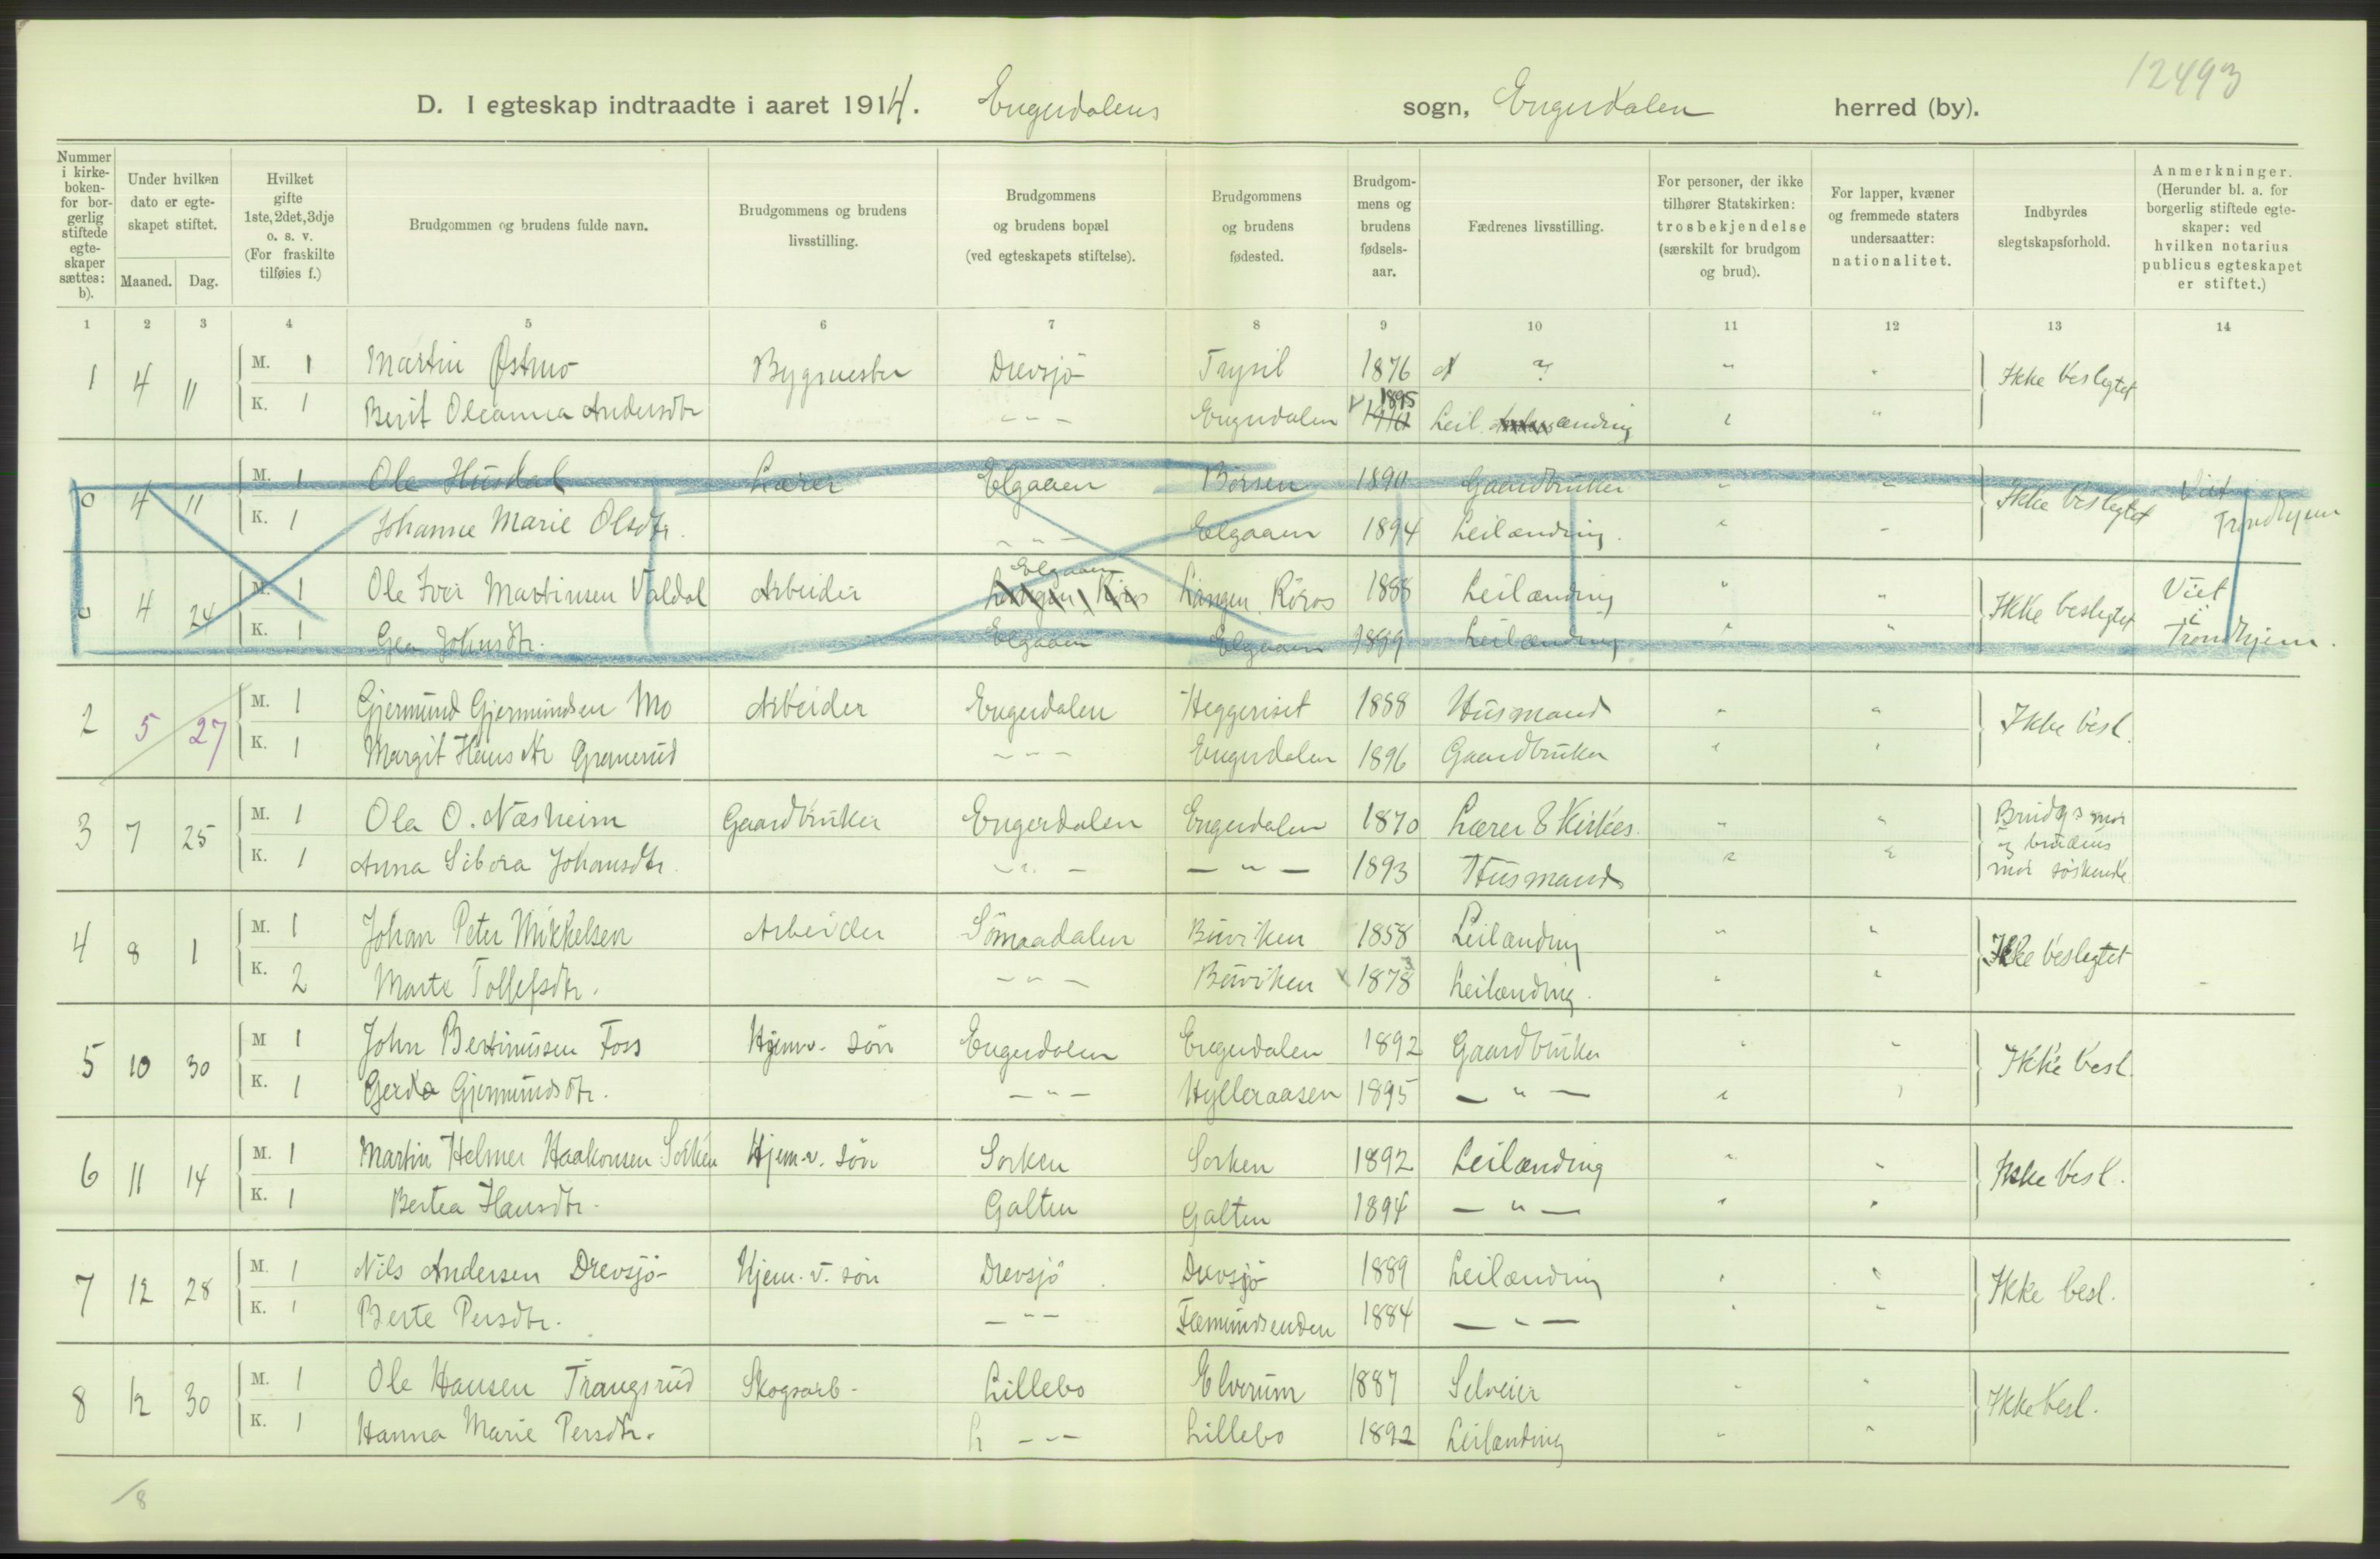 12493
D. I egteskap indtraadte i aaret 1914. Engerdalens sogn, Engerdalen herred (by).
Nummer i kirke-boken- for bor-gerlig stiftede egte-skaper sættes: b). Under hvilken dato er egte-skapet stiftet. Maaned. Dag. Hvilket gifte 1ste, 2det, 3dje o. s. v. (For fraskilte tilføies f.) Brudgommen og brudens fulde navn. Brudgommens og brudens livsstilling. Brudgommens og brudens bopæl (ved egteskapets stiftelse). Brudgommens og brudens fødested. Brudgom-mens og brudens fødsels-aar. Fædrenes livsstilling. For personer, der ikke tilhører Statskirken: trosbekjendelse (særskilt for brudgom og brud). For lapper, kvæner og fremmede staters undersaatter: nationalitet. Indbyrdes slegtskapsforhold. Anmerkninger. (Herunder bl. a. for borgerlig stiftede egte-skaper: ved hvilken notarius publicus egteskapet er stiftet.)
1 2 3 4 5 6 7 8 9 10 11 12 13 14
1 4 11 M. 1 Martin Østmo Bygmester Drevsjö Trysil 1876 ? " " Ikke beslegtet
K. 1 Berit Oleanna Andersdtr - - - Engerdalen 1895 Leilænding " "
0 4 11 M. 1 Ole Husdal Lærer Elgaaen Børsen 1890 Gaardbruker " " Ikke beslegtet Viet Trondhjem
K. 1 Johanne Marie Olsdtr. - - - Elgaaen 1894 Leilænding. " "
0 4 24 M. 1 Ole Iver Martinsen Valdal Arbeider Elgaaen Langen Röros Langen Röros 1888 Leilænding " " Ikke beslegtet Viet i Trondhjem.
K. 1 Gea Johnsdtr. Elgaaen Elgaaen 1889 Leilænding " "
2 5 27 M. 1 Gjermund Gjermundsen Mo Arbeider Engerdalen Heggeriset 1888 Husmand " " Ikke besl.
K. 1 Margit Hansdtr Granerud - - - Engerdalen 1896 Gaardbruker " "
3 7 25 M. 1 Ola O. Næsheim Gaardbruker Engerdalen Engerdalen 1870 Lærer & Kirkes. " " Brudgs mor og brudens mor søskende
K. 1 Anna Sibora Johansdtr. - " - - " - 1893 Husmand " "
4 8 1 M. 1 Johan Peter Mikkelsen Arbeider Sömaadalen Buviken 1858 Leilænding " " Ikke beslegtet
K. 2 Marte Tollefsdtr. - " - Buviken 1873 Leilænding. " "
5 10 30 M 1 John Bertinussen Foss Hjemv. sön Engerdalen Engerdalen 1892 Gaardbruker " " Ikke besl.
K. 1 Gerda Gjermundsdtr. - " - Hylleraasen 1895 - " - " "
6 11 14 M. 1 Martin Helmer Haakonsen Sorken Hjem.v. sön Sorken Sorken 1892 Leilænding " " Ikke besl.
K. 1 Bertea Hansdtr. Galten Galten 1894 - " - " "
7 12 28 M. 1 Nils Andersen Drevsjö Hjem. v. sön Drevsjö Drevsjö 1889 Leilænding " " Ikke besl.
K. 1 Berte Persdtr. - - - Fæmundsenden 1884 - " - " "
8 12 30 M. 1 Ole Hansen Trangsrud Skogsarb. Lillebo Elverum 1887 Selveier " " Ikke besl.
K. 1 Hanna Marie Persdtr. - - - Lillebo 1892 Leilænding " "
/8